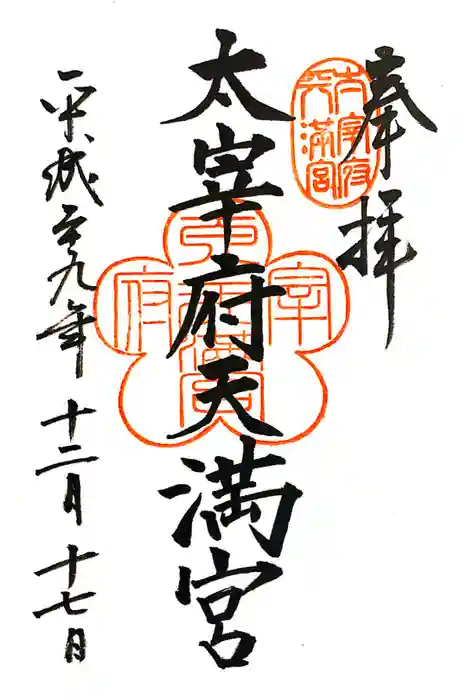 奉拝
太宰府天満宮
平成二十九年十二月十七日
太宰府
天満宮